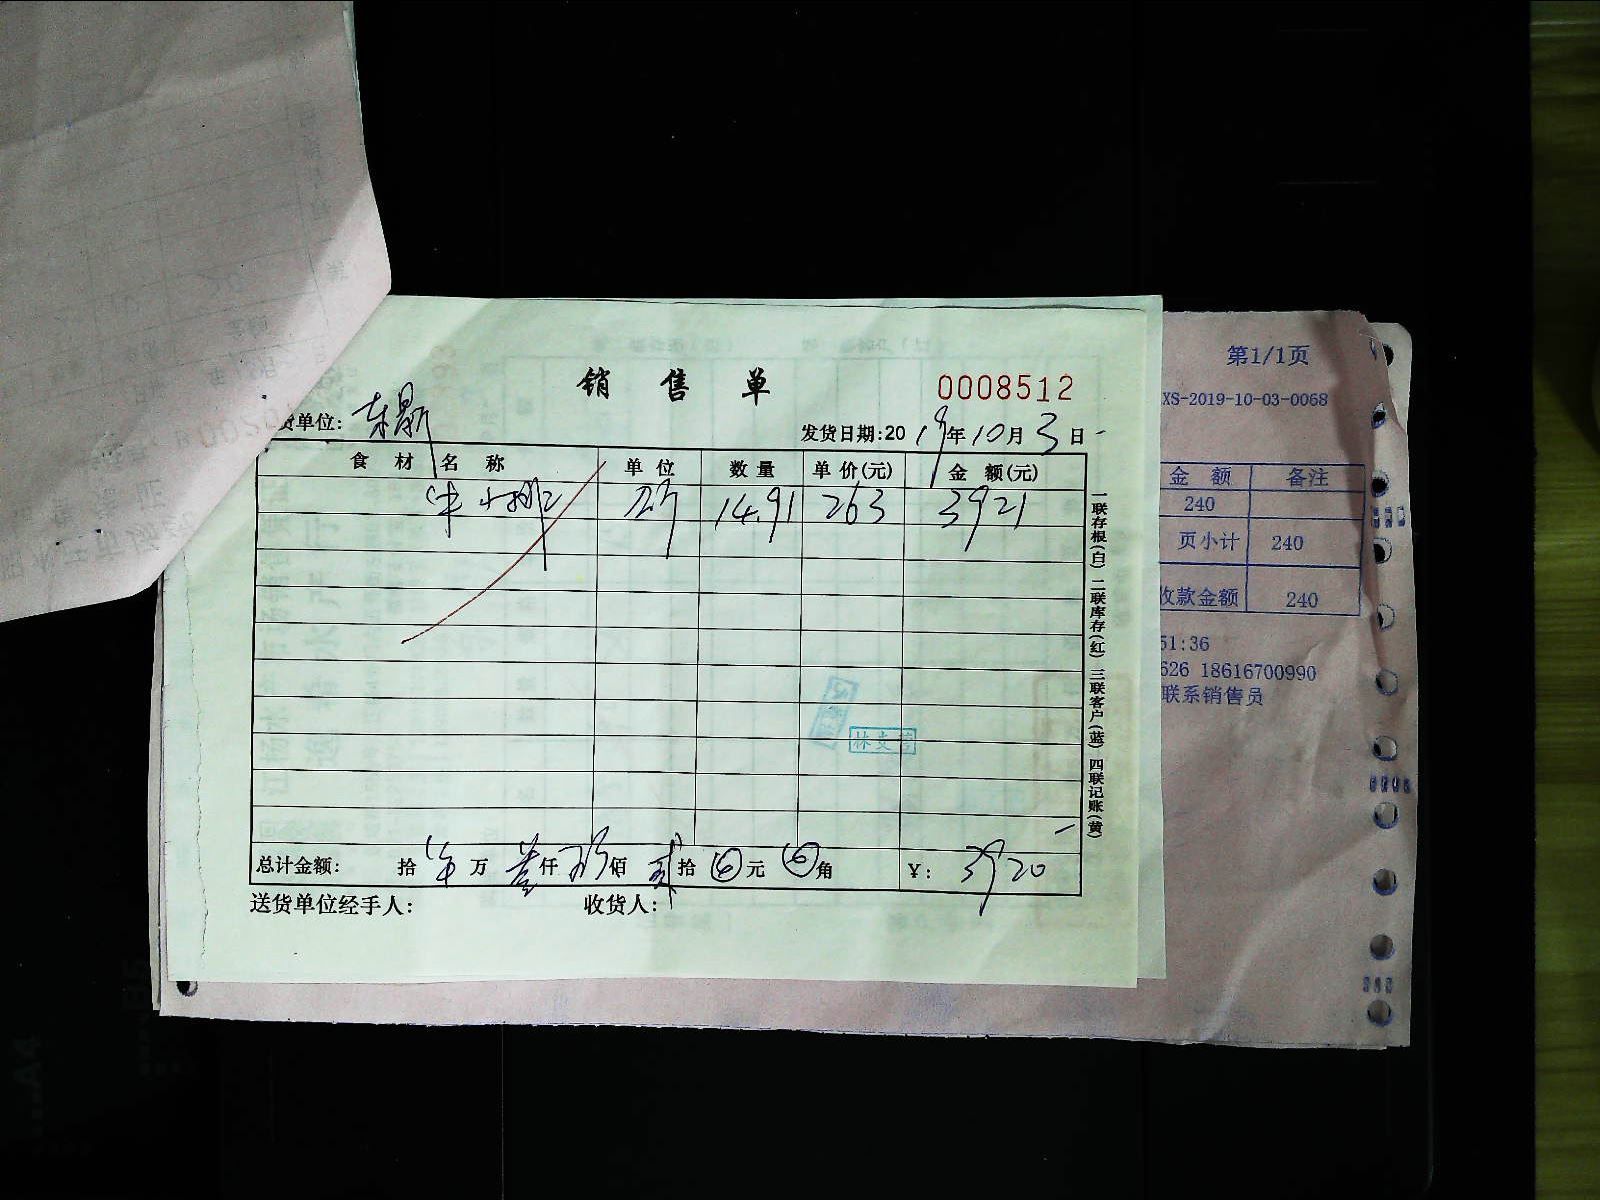 销售单
0008512
货单位:
发货日期:2019年10月3日
食材名称 单位 数量 单价(元) 金额(元)
牛小排 斤 14.91 263 3921
一联存根(白) 二联库存(红) 三联客户(蓝) 四联记账(黄)
总计金额: 拾 万 叁仟 玖佰 贰拾 元 角 ¥: 3920
送货单位经手人: 收货人:
第1/1页
XS-2019-10-03-0068
金额 备注
240
页小计 240
收款金额 240
51:36
626 18616700990
联系销售员